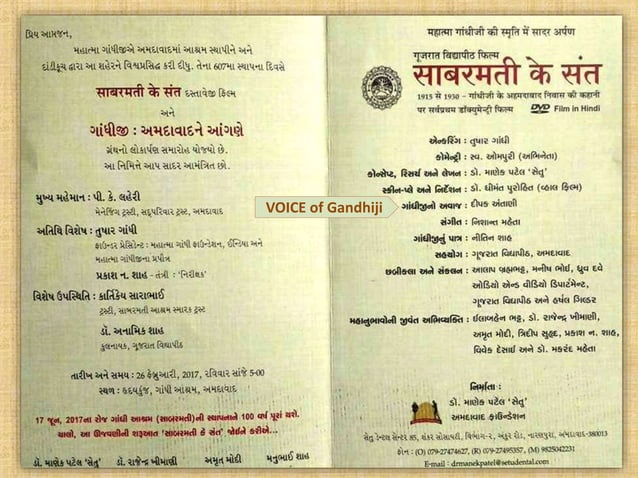 પ્રિય આપ્તજન,
મહાત્મા ગાંધીજીએ અમદાવાદમાં આશ્રમ સ્થાપીને અને
દાંડીકૂચ દ્વારા આ શહેરને વિશ્વપ્રસિદ્ધ કરી દીધુ. તેના 607મા સ્થાપના દિવસે
સાબરમતી કે સંત દસ્તાવેજી ફિલ્મ
અને
ગાંધીજી : અમદાવાદને આંગણે
ગ્રંથનો લોકાર્પણ સમારોહ યોજ્યો છે.
આ નિમિત્તે આપ સાદર આમંત્રિત છો.
મુખ્ય મહેમાન : પી. કે. લહેરી
મેનેજિંગ ટ્રસ્ટી, સદ્‌વિચાર ટ્રસ્ટ, અમદાવાદ
અતિથિ વિશેષ : તુષાર ગાંધી
ફાઉન્ડર પ્રેસિડેન્ટ : મહાત્મા ગાંધી ફાઉન્ડેશન, ઈન્ડિયા અને
મહાત્મા ગાંધીજીના પ્રપૌત્ર
પ્રકાશ ન. શાહ - તંત્રી : 'નિરીક્ષક'
વિશેષ ઉપસ્થિતિ : કાર્તિકેય સારાભાઈ
ટ્રસ્ટી, સાબરમતી આશ્રમ સ્મારક ટ્રસ્ટ
ડૉ. અનામિક શાહ
કુલનાયક, ગૂજરાત વિદ્યાપીઠ
તારીખ અને સમય : 26 ફેબ્રુઆરી, 2017, રવિવાર સાંજે 5-00
સ્થળ : હૃદયકુંજ, ગાંધી આશ્રમ, અમદાવાદ
17 જૂન, 2017ના રોજ ગાંધી આશ્રમ (સાબરમતી)ની સ્થાપનાને 100 વર્ષ પૂરાં થશે.
ચાલો, આ ઊજવણીની શરૂઆત 'સાબરમતી કે સંત' જોઈને કરીએ...
ડૉ. માણેક પટેલ 'સેતુ' ડૉ. રાજેન્દ્ર ખીમાણી અમૃત મોદી મનુભાઈ શાહ
महात्मा गांधीजी की स्मृति में सादर अर्पण
गूजरात विद्यापीठ फिल्म
साबरमती के संत
1915 से 1930 - गांधीजी के अहमदाबाद निवास की कहानी
पर सर्वप्रथम डॉक्युमेन्ट्री फिल्म DVD Film in Hindi
એન્કરિંગ : તુષાર ગાંધી
કોમેન્ટ્રી : સ્વ. ઓમપુરી (અભિનેતા)
કોન્સેપ્ટ, રિસર્ચ અને લેખન : ડૉ. માણેક પટેલ 'સેતુ'
સ્ક્રીન-પ્લે અને નિર્દેશન : ડૉ. ધીમંત પુરોહિત (વ્હાલ ફિલ્મ)
VOICE of Gandhiji ગાંધીજીનો અવાજ : દીપક અંતાણી
સંગીત : નિશાન્ત મહેતા
ગાંધીજીનું પાત્ર : નીતિન શાહ
સહયોગ : ગૂજરાત વિદ્યાપીઠ, અમદાવાદ
છબીકલા અને સંકલન : આલાપ બ્રહ્મભટ્ટ, મનીષ ભોઈ, ધ્રુવ દવે
ઓડિયો એન્ડ વીડિયો ડિપાર્ટમેન્ટ,
ગૂજરાત વિદ્યાપીઠ અને હર્ષલ ગિલ્ડર
મહાનુભાવોની જીવંત અભિવ્યક્તિ : ઈલાબહેન ભટ્ટ, ડૉ. રાજેન્દ્ર ખીમાણી,
અમૃત મોદી, ત્રિદીપ સુહૃદ, પ્રકાશ ન. શાહ,
વિવેક દેસાઈ અને ડૉ. મકરંદ મહેતા
નિર્માતા :
ડૉ. માણેક પટેલ 'સેતુ'
અમદાવાદ ફાઉન્ડેશન
સેતુ ડેન્ટલ સેન્ટર 85, શંકર સોસાયટી, વિભાગ-૨, અંકુર રોડ, નારણપુરા, અમદાવાદ-380013
ફોન : (O) 079-27474627, (R) 079-27495357, (M) 9825042231
E-mail : drmanekpatel@setudental.com